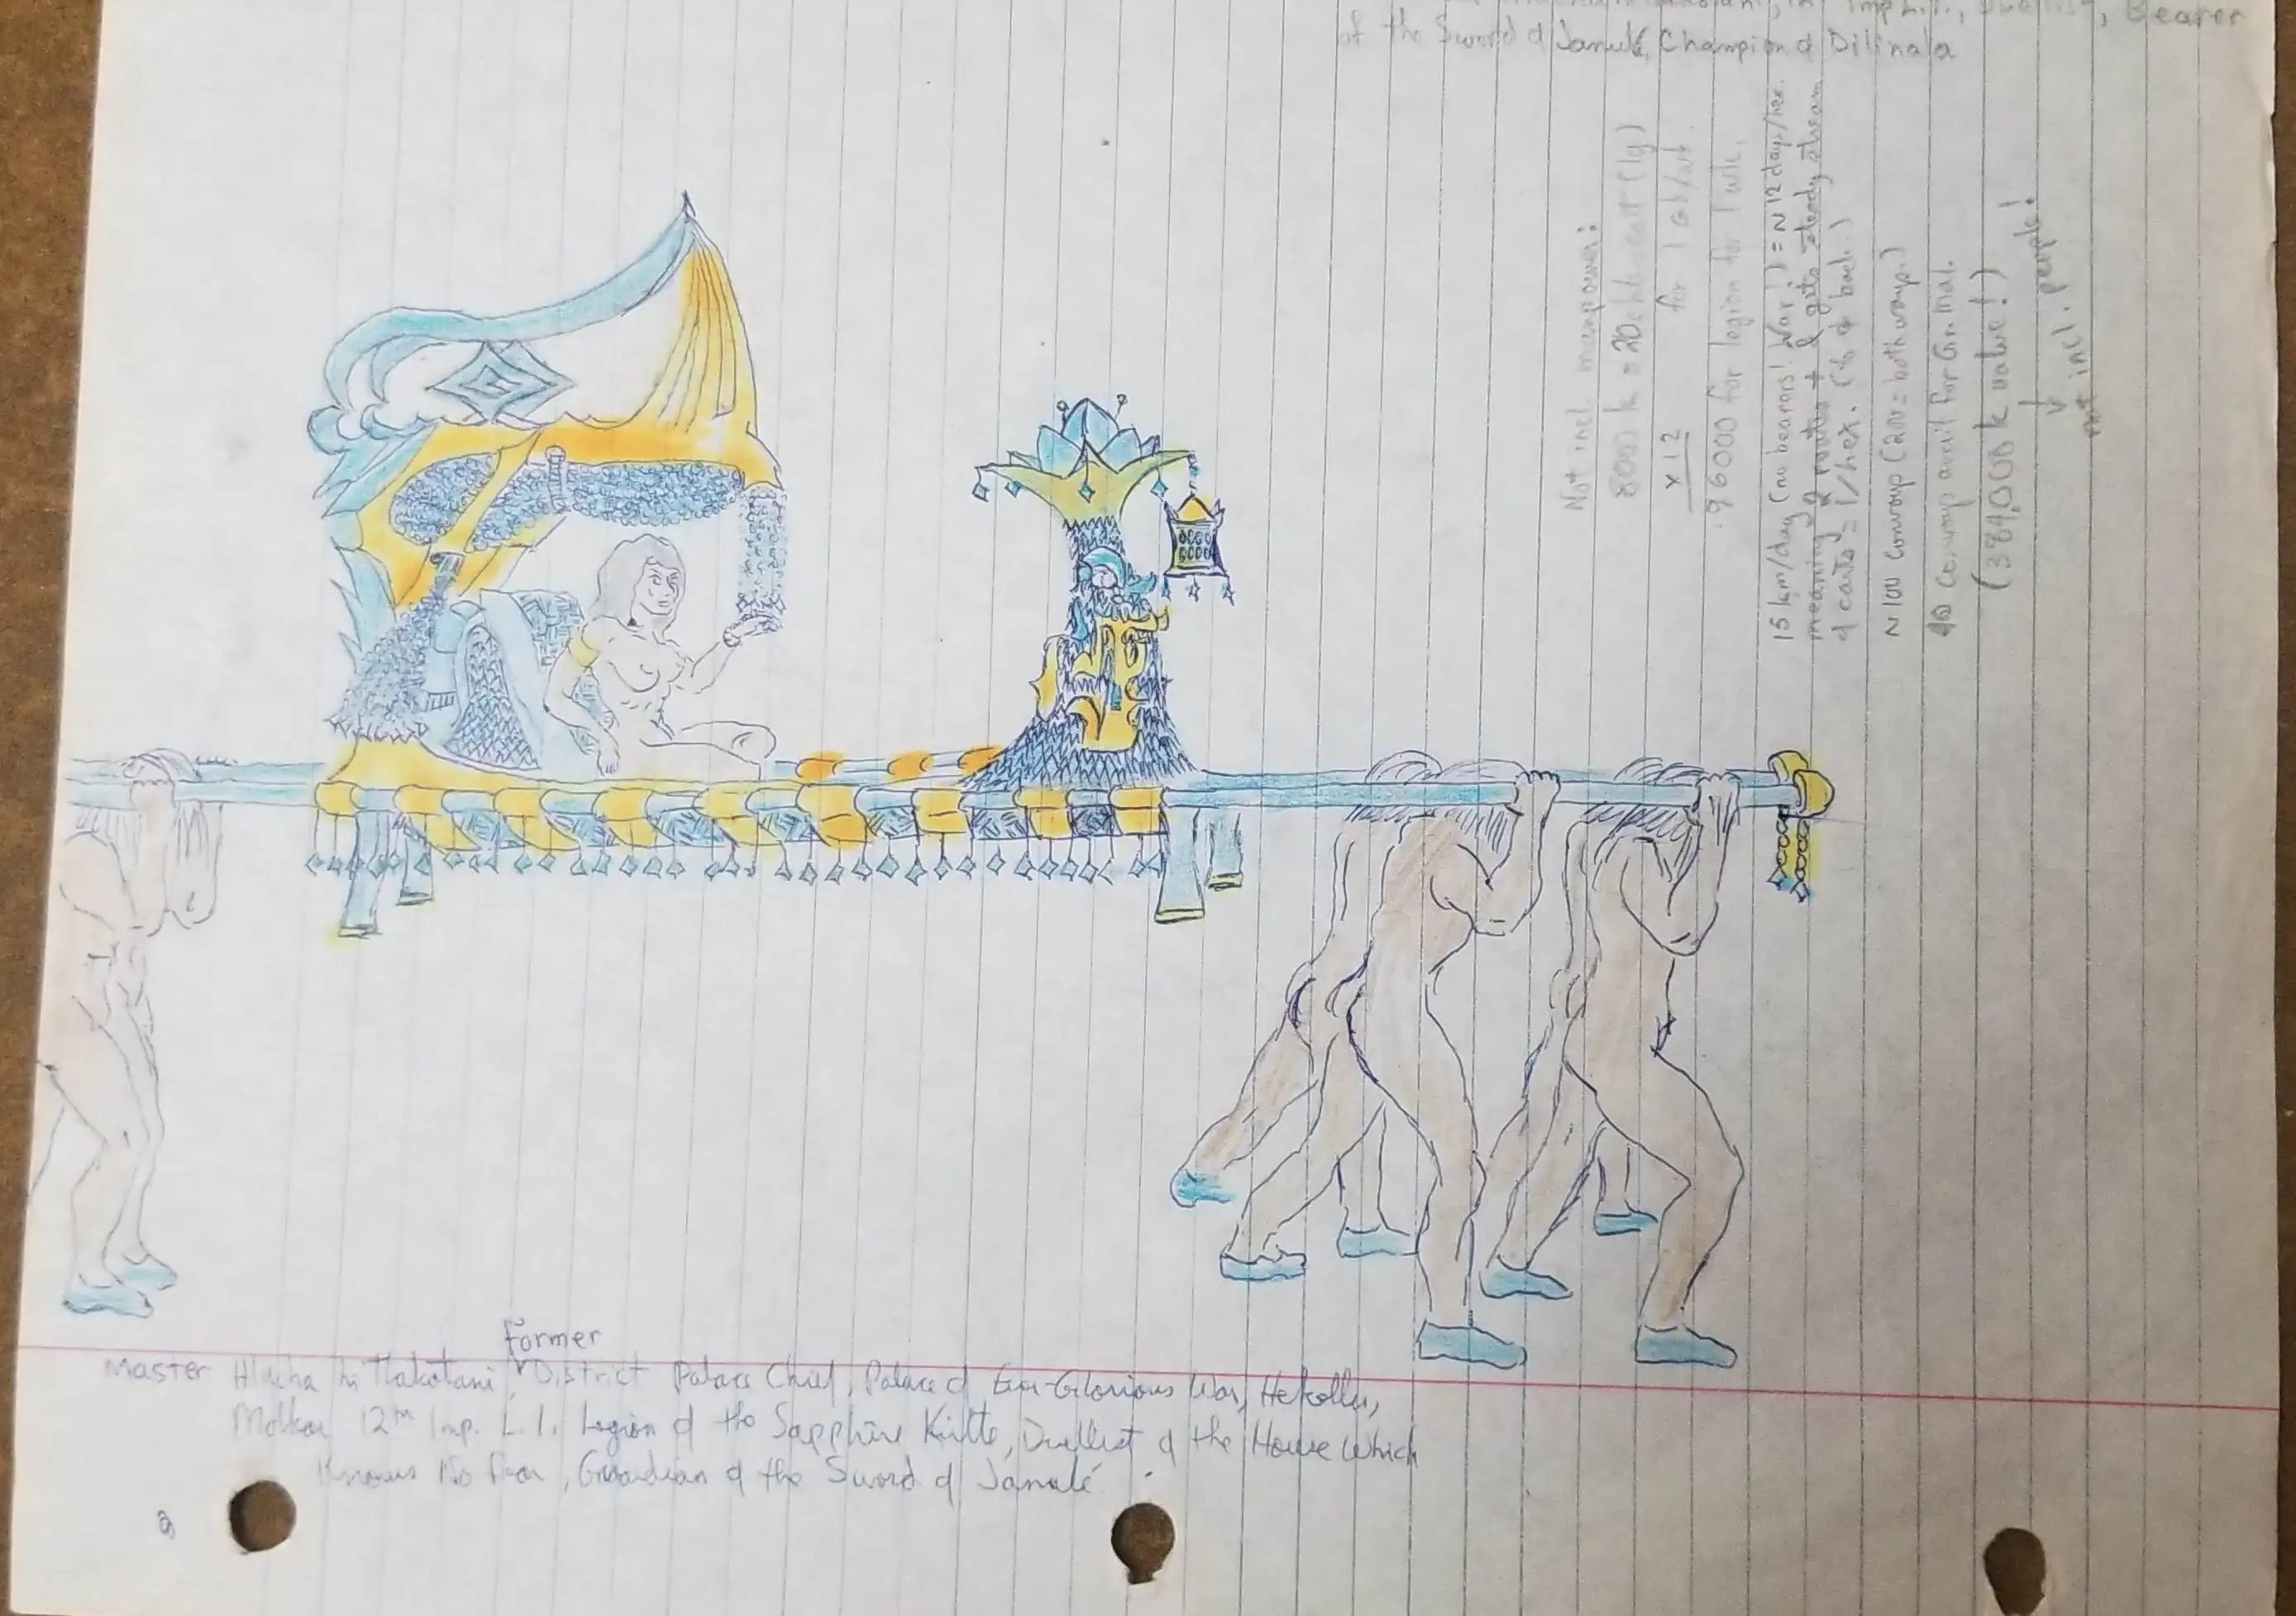 Imp. L.I., Duellist, Bearer
of the Sword of Janulé, Champion of Dilinala
Not incl. manpower:
8000 k = 20 chlen cart (lg)
x 12 for 1 cab/wk.
96000 for legion for 1 wk.
15 km/day (no bearers! War!) = ~ 12 days/hex.
meaning 2 routes + 1 gets steady stream
of carts = 1/hex. (to & back.)
~ 100 convoys (200 = both ways.)
40 convoys avail for Gr. Mal.
(384,000 k value!)
not incl. people!
Former
Master Hlucha hi Tlakotani, District Palace Chief, Palace of Ever-Glorious War, Hekellu,
Molkar 12th Imp. L.I. Legion of the Sapphire Kirtle, Duellist of the House Which
Knows No Fear, Guardian of the Sword of Janulé